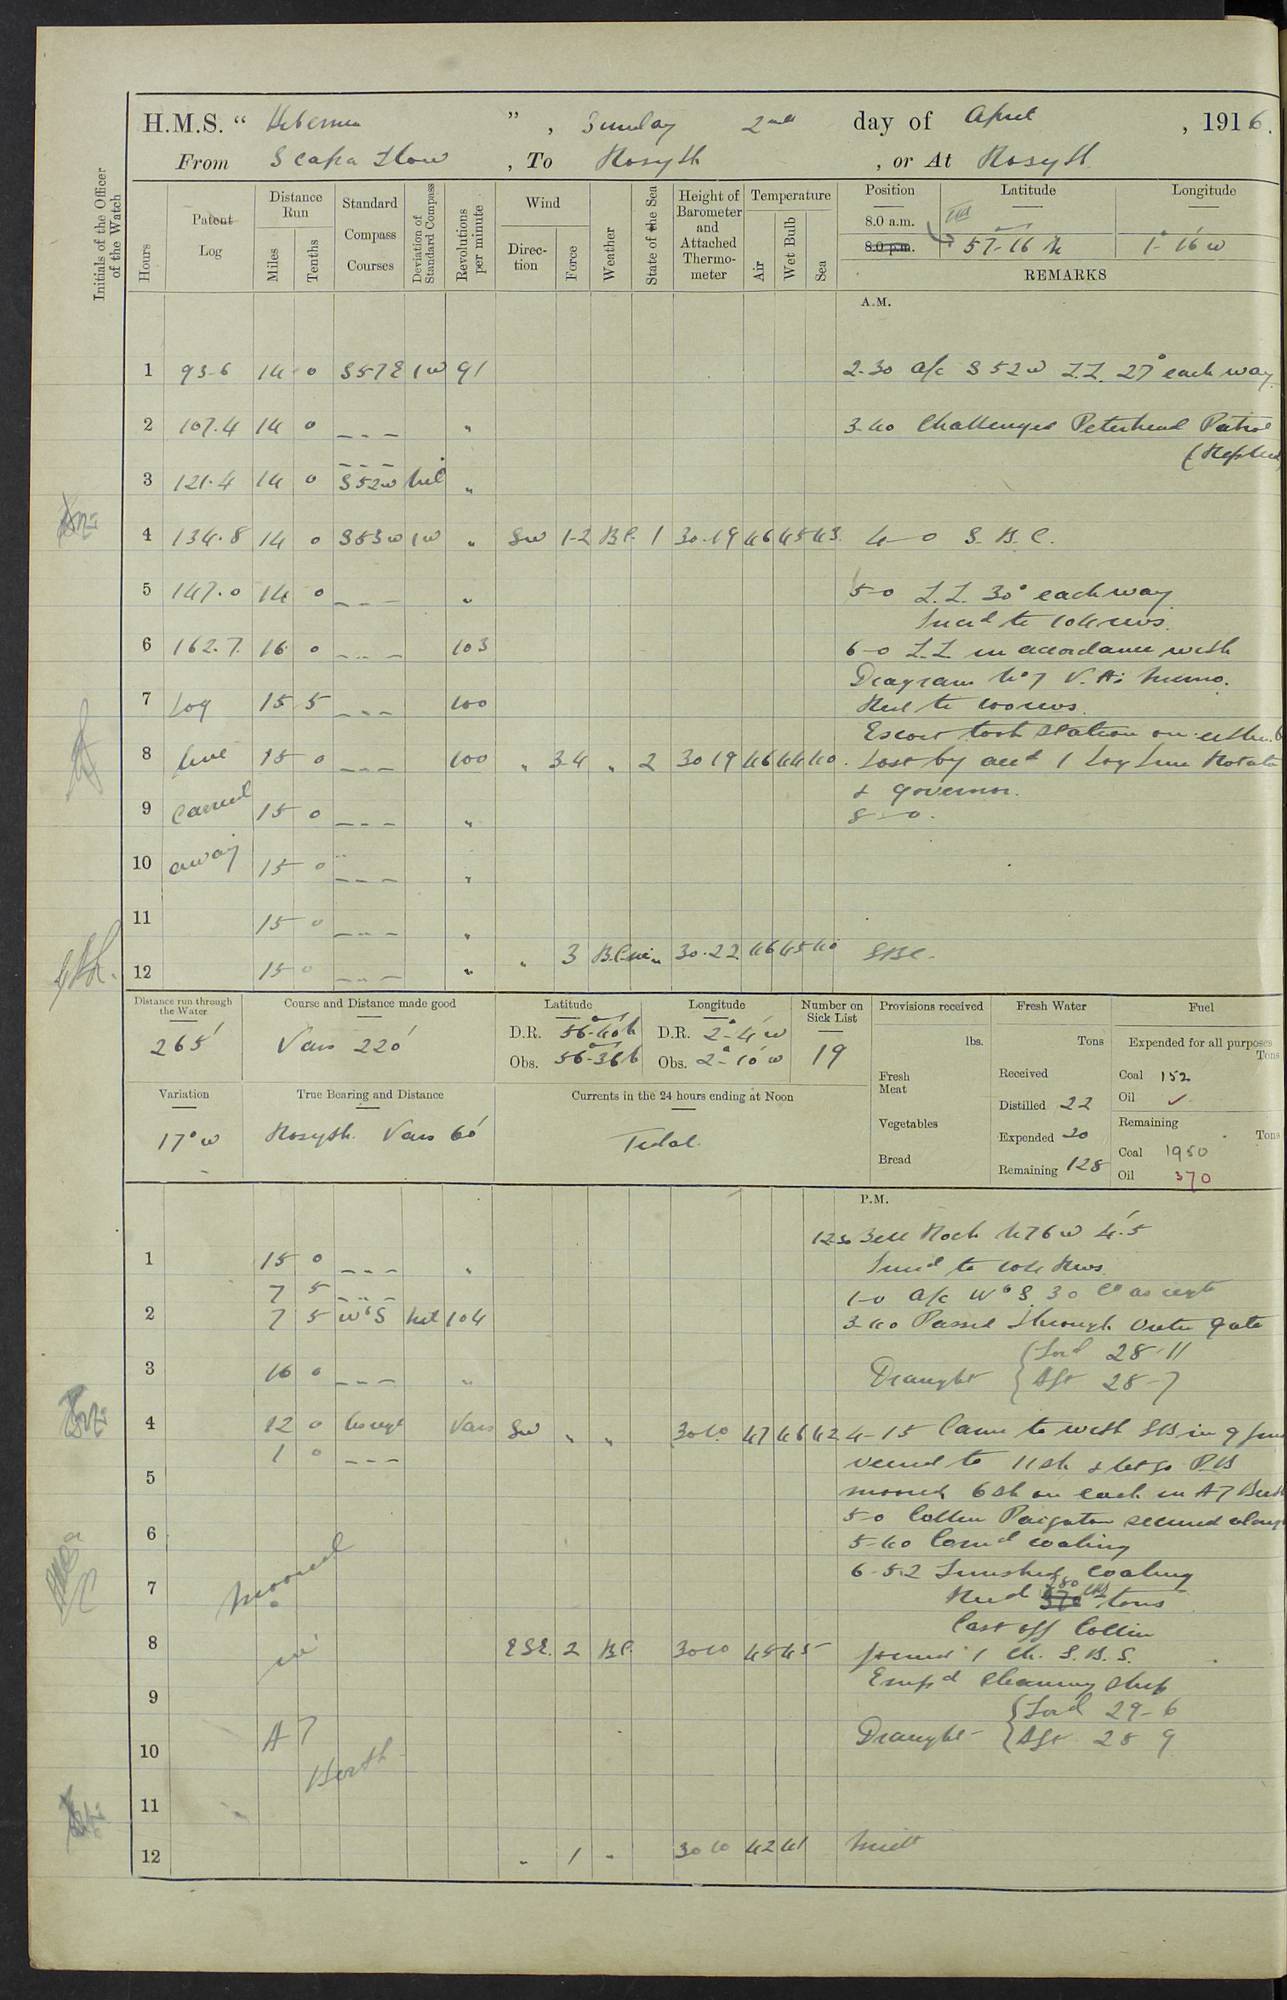 H.M.S. " Hibernia " , Sunday 2nd day of April , 1916.
From Scapa Flow , To Rosyth , or At Rosyth
Initials of the Officer of the Watch
Hours
Patent Log
Distance Run
Miles
Tenths
Standard Compass Courses
Deviation of Standard Compass
Revolutions per minute
Wind
Direction
Force
Weather
State of the Sea
Height of Barometer and Attached Thermometer
Temperature
Air
Wet Bulb
Sea
Position Latitude Longitude
8.0 a.m. 57-16 N 1°-16' W
8.0 p.m.
REMARKS
A.M.
1 93.6 14 0 S57E 1W 91 2-30 a/c S 52 W Z.Z. 27° each way
2 107.4 14 0 - - - " 3-40 Challenged Peterhead Patrol
(Replied
- - -
3 121.4 14 0 S52W Nil "
4 134.8 14 0 S53W 1W " SW 1-2 B.C. 1 30.19 46 45 43 4-0 S.B.C.
5 147.0 14 0 - - - " 5-0 Z.Z. 30° each way
Incd to 104 revs.
6 162.7 16 0 - - - 103 6-0 Z.Z. in accordance with
Diagram No 7 V.A's Memo.
7 Log 15 5 - - - 100 Red to 100 revs.
Escort took station on
8 line 15 0 - - - 100 " 3-4 " 2 30 19 46 44 40 Lost by acct 1 Log Line Rotator
& governor.
9 carried 15 0 - - - " 8-0.
10 away 15 0 - - - "
11 15 0 - - - "
12 15 0 - - - " " 3 B.C. " 30.22 46 45 40 SBC.
Distance run through the Water Course and Distance made good Latitude Longitude Number on Sick List Provisions received Fresh Water Fuel
265' Vars 220' D.R. 56°-40' N D.R. 2°-4' W 19 lbs. Tons Expended for all purposes Tons
Obs. 56°-36' N Obs. 2°-10' W
Fresh Meat Received Coal 152
Oil ✓
Variation True Bearing and Distance Currents in the 24 hours ending at Noon
Distilled 22
Vegetables Expended 20 Remaining Tons
17° W Rosyth Vars 60' Tidal.
Bread Remaining 128 Coal 1950
Oil 370
P.M.
12-30 Bell Rock N 76 W 4'.5
1 15 0 - - - " Incd to 104 Revs
7 5 - - - 1-0 a/c W b S 30 Co as reqte
2 7 5 W b S Nil 104 3-40 Passed through Outer gate
3 16 0 - - - " Draught { Ford 28-11
Aft 28-7
4 12 0 As reqt Vars SW " " 30 10 47 46 42 4-15 Came to with SB in 9
1 0 - - - veered to 11 sh & let go P.B
5 moored 6 sh on each in A7 Berth
5-0 Collier Paignton secured along
6 5-40 Comd coaling
6-52 Finished coaling
7 Moored Recd 280 tons
Cast off Collier
8 in ESE. 2 B.C. 30 10 45 45 1 Ch. S.B.S.
Empd Cleaning Ship
9 Draught { Ford 29-6
Aft 28 9
10 A7
Berth
11
12 " 1 " 30 10 42 41